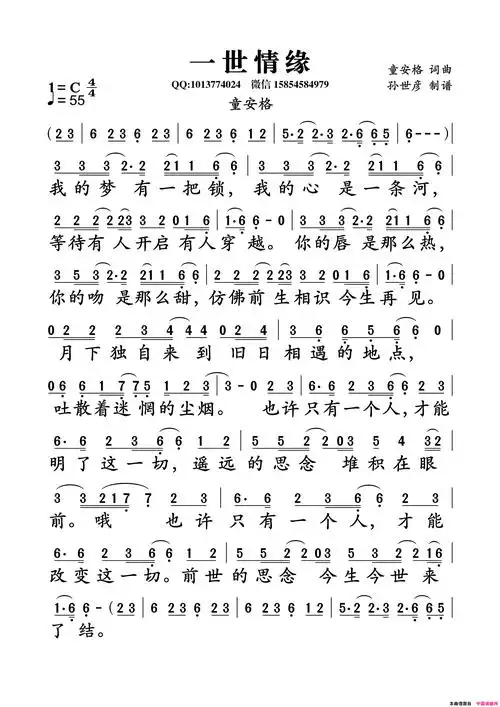 一世情缘
QQ:1013774024 微信 15854584979
童安格 词曲
孙世彦 制谱
1=C 4/4
♩=55
童安格
(2 3 | 6 2 3 6 2 3 | 6 2 3 6 1 2 | 5·2 2·3 3·2·6 6 5 | 6 - - -)
3 3 3 2·2 | 2 1 1 6 6 | 3 3 3 2·2 | 2 1 1 6 6
我的梦 有一把锁，我的心 是一条河，
2 2 2 2 2 2 3 | 3 2 0 1 6 | 1·6 6 - 0 | 3 3 3 2·2 | 2 1 1 6 6
等待有人开启有人穿越。你的唇是那么热，
3 5 3 2·2 | 2 1 1 6 6 | 2 2 2 2 2 3 | 3 2 0 1 6 | 1·6 6 - 0
你的吻是那么甜，仿佛前生相识今生再见。
0 2 2 2 3 4 4 4 | 0 2 2 2 2 | 3 6 5 6 6 6 0
月下独自来到旧日相遇的地点，
0 6 6 1 7 7 5 | 1 2 3 | 3 - 0 2 3 | 6·6 2 3 2 3
吐散着迷惘的尘烟。也许只有一个人，才能
6·6 2 3 6 6 1 2 | 5 5 2 2 0 3 5 4 3 2
明了这一切，遥远的思念 堆积在眼
3 3 2 1 7 7 2 3 | 6·6 2 3 2 3
前。哦 也许只有一个人，才能
6·6 2 3 6 6 1 2 | 5 5 2 2 0 3 5 3 2 1 6
改变这一切。前世的思念 今生今世来
1·6 6 - (2 3 | 6 2 3 6 2 3 | 6 2 3 6 1 2 | 5·2 2·3 3·2·6 6 5
了结。
本曲谱源自 中国词曲网